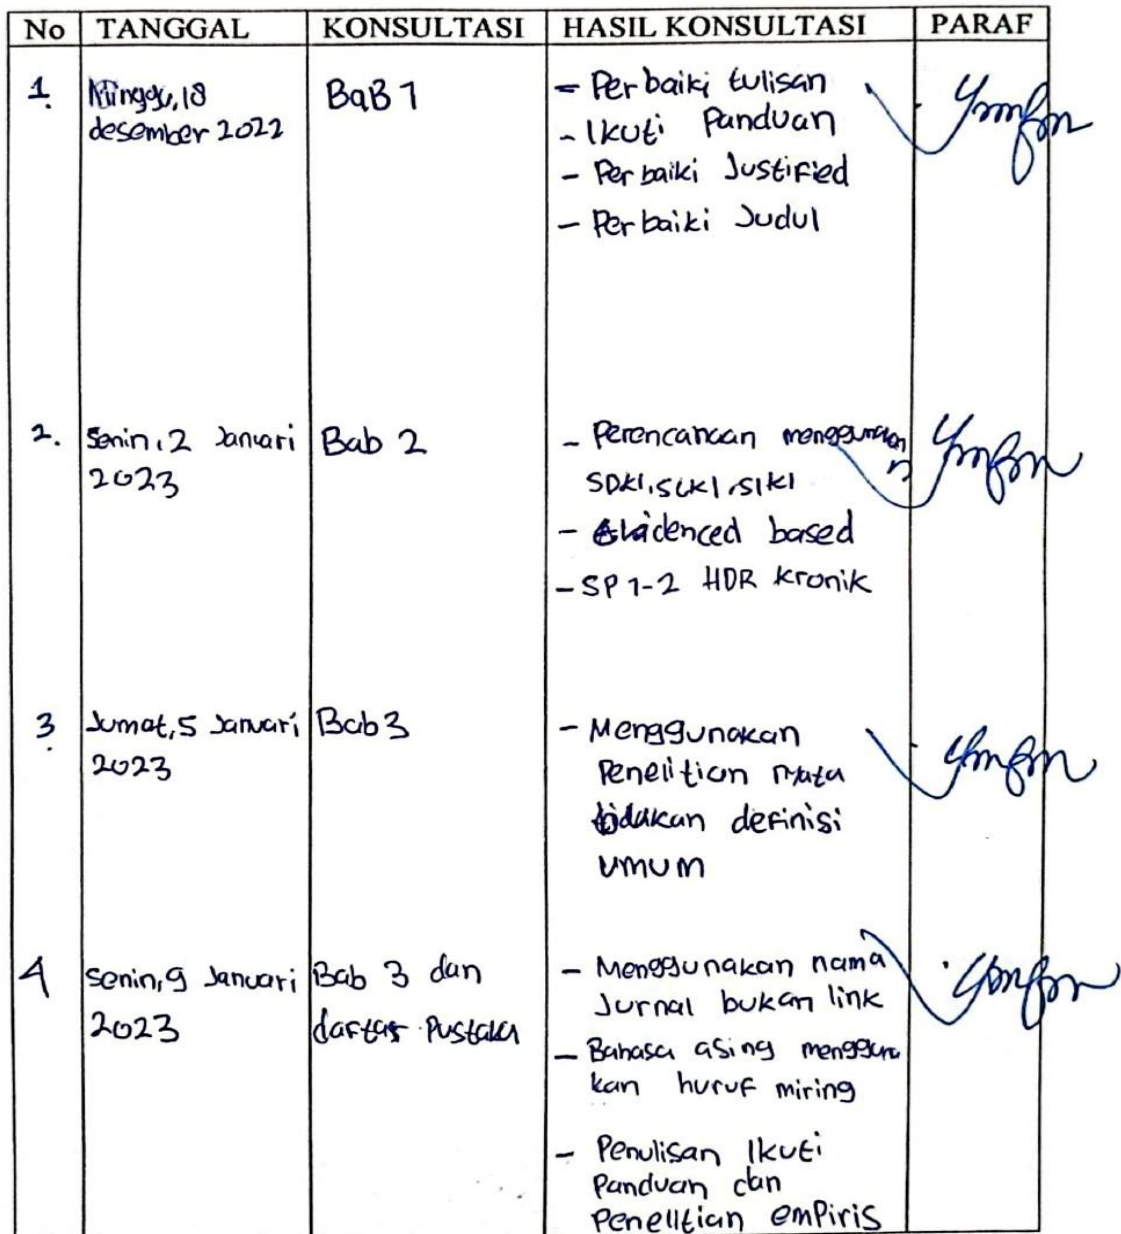 No TANGGAL KONSULTASI HASIL KONSULTASI PARAF
1. Minggu, 18 BaB 1 - Perbaiki tulisan
desember 2022 - Ikuti Panduan
- Perbaiki Justified
- Perbaiki Judul
2. Senin, 2 Januari Bab 2 - Perencanaan menggunakan
2023 SDKI, SLKI, SIKI
- Evidenced based
- SP 1-2 HDR Kronik
3. Jumat, 5 Januari Bab 3 - Menggunakan
2023 Penelitian
definisi
umum
4 Senin, 9 Januari Bab 3 dan - Menggunakan nama
2023 daftar Pustaka Jurnal bukan link
- Bahasa asing mengguna
kan huruf miring
- Penulisan Ikuti
Panduan dan
Penelitian empiris